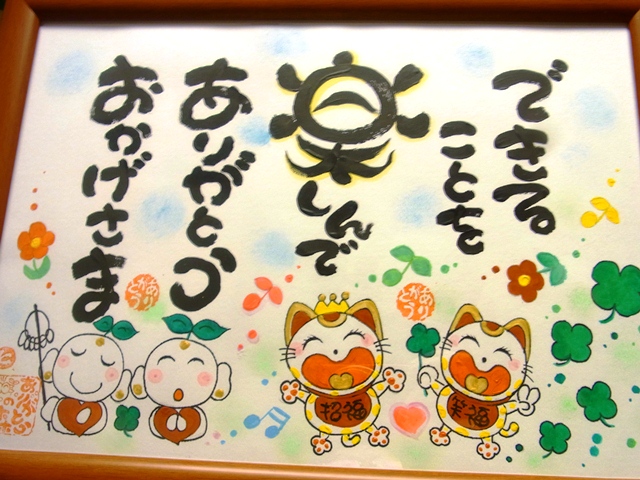 できる
ことを
楽しんで
ありがとう
おかげさま
ありがとう
ありがとう
招福
笑福